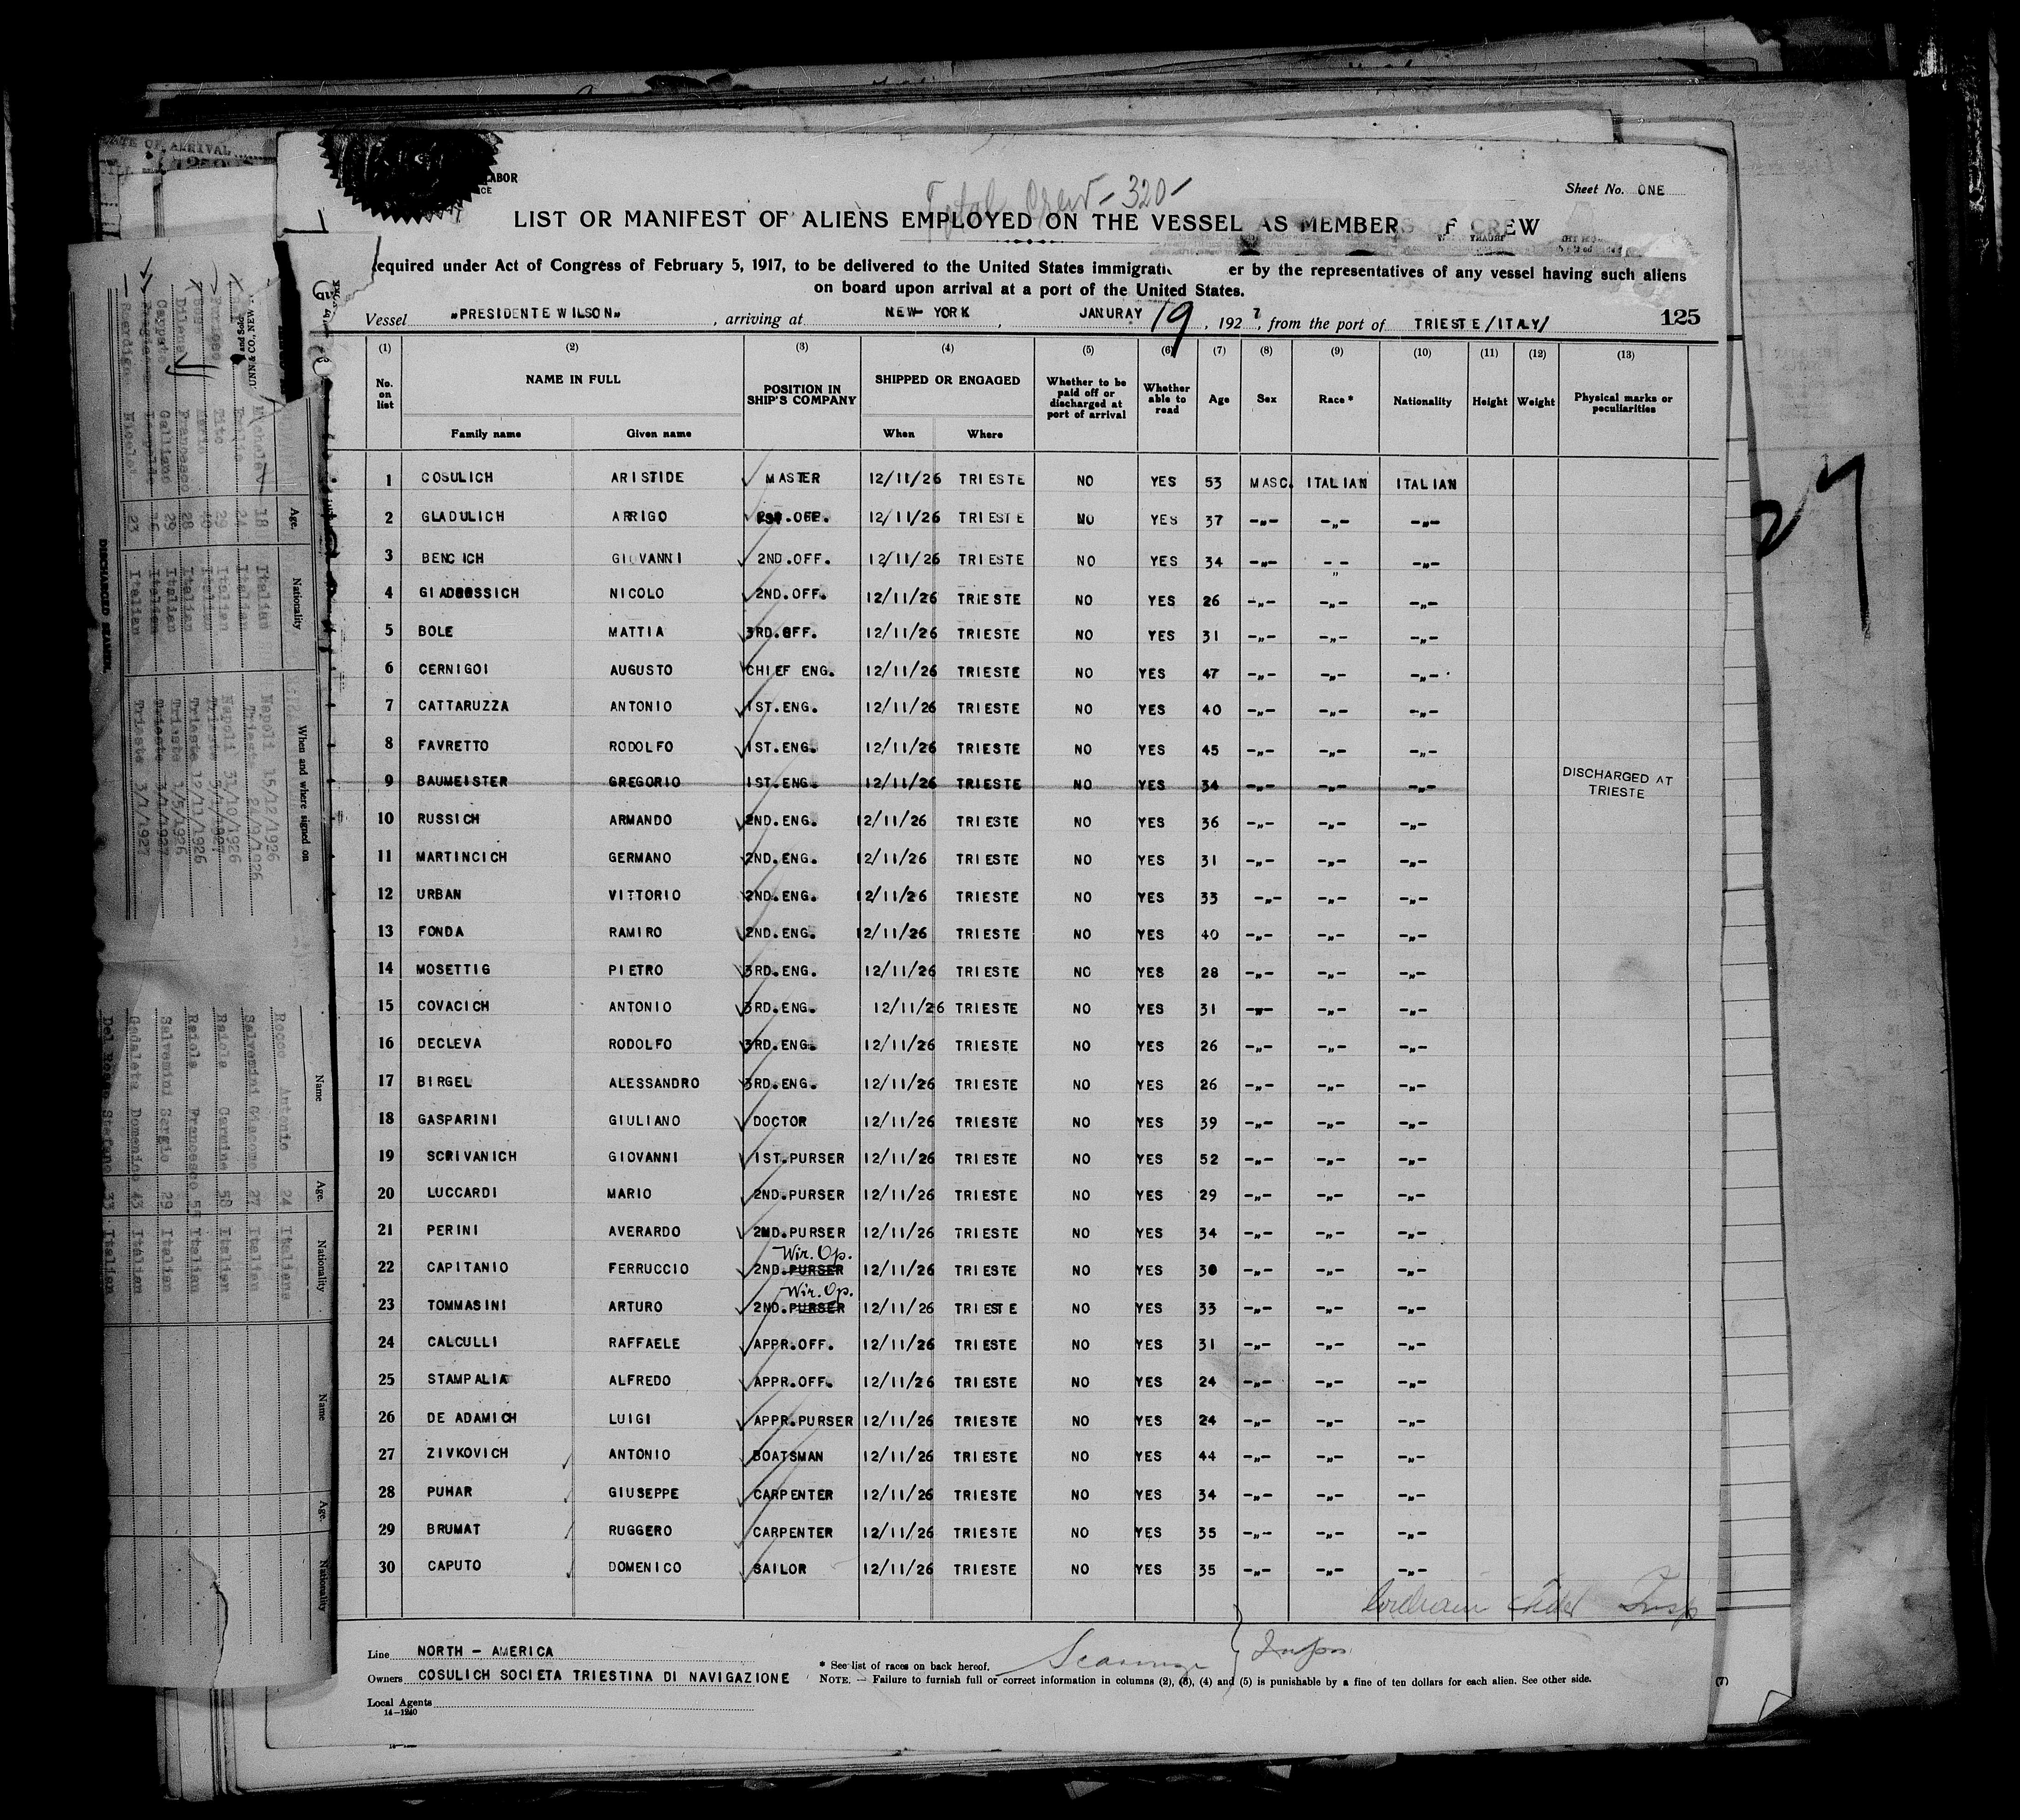 Total Crew - 320 -
Sheet No. ONE
LIST OR MANIFEST OF ALIENS EMPLOYED ON THE VESSEL AS MEMBERS OF CREW
equired under Act of Congress of February 5, 1917, to be delivered to the United States immigrati er by the representatives of any vessel having such aliens
on board upon arrival at a port of the United States.
Vessel „PRESIDENTE WILSON„ , arriving at NEW YORK , JANURAY 19 , 1927 , from the port of TRIESTE/ITALY/ 125
(1) (2) (3) (4) (5) (6) (7) (8) (9) (10) (11) (12) (13)
No. on list NAME IN FULL POSITION IN SHIP'S COMPANY SHIPPED OR ENGAGED Whether to be paid off or discharged at port of arrival Whether able to read Age Sex Race * Nationality Height Weight Physical marks or peculiarities
Family name Given name When Where
1 COSULICH ARISTIDE MASTER 12/11/26 TRIESTE NO YES 53 MASC. ITALIAN ITALIAN
2 GLADULICH ARRIGO 1ST.OFF. 12/11/26 TRIESTE NO YES 37 -„- -„- -„-
3 BENCICH GIOVANNI 2ND.OFF. 12/11/26 TRIESTE NO YES 34 -„- -„- -„-
4 NICOLO 2ND.OFF. 12/11/26 TRIESTE NO YES 26 -„- -„- -„-
5 BOLE MATTIA 3RD.OFF. 12/11/26 TRIESTE NO YES 31 -„- -„- -„-
6 CERNIGOI AUGUSTO CHIEF ENG. 12/11/26 TRIESTE NO YES 47 -„- -„- -„-
7 CATTARUZZA ANTONIO 1ST.ENG. 12/11/26 TRIESTE NO YES 40 -„- -„- -„-
8 FAVRETTO RODOLFO 1ST.ENG. 12/11/26 TRIESTE NO YES 45 -„- -„- -„-
9 BAUMEISTER GREGORIO 1ST.ENG. 12/11/26 TRIESTE NO YES 34 -„- -„- -„- DISCHARGED AT TRIESTE
10 RUSSICH ARMANDO 2ND.ENG. 12/11/26 TRIESTE NO YES 36 -„- -„- -„-
11 MARTINCICH GERMANO 2ND.ENG. 12/11/26 TRIESTE NO YES 31 -„- -„- -„-
12 URBAN VITTORIO 2ND.ENG. 12/11/26 TRIESTE NO YES 33 -„- -„- -„-
13 FONDA RAMIRO 2ND.ENG. 12/11/26 TRIESTE NO YES 40 -„- -„- -„-
14 MOSETTIG PIETRO 3RD.ENG. 12/11/26 TRIESTE NO YES 28 -„- -„- -„-
15 COVACICH ANTONIO 3RD.ENG. 12/11/26 TRIESTE NO YES 31 -„- -„- -„-
16 DECLEVA RODOLFO 3RD.ENG. 12/11/26 TRIESTE NO YES 26 -„- -„- -„-
17 BIRGEL ALESSANDRO 3RD.ENG. 12/11/26 TRIESTE NO YES 26 -„- -„- -„-
18 GASPARINI GIULIANO DOCTOR 12/11/26 TRIESTE NO YES 39 -„- -„- -„-
19 SCRIVANICH GIOVANNI 1ST.PURSER 12/11/26 TRIESTE NO YES 52 -„- -„- -„-
20 LUCCARDI MARIO 2ND.PURSER 12/11/26 TRIESTE NO YES 29 -„- -„- -„-
21 PERINI AVERARDO 2ND.PURSER 12/11/26 TRIESTE NO YES 34 -„- -„- -„-
Wir. Op.
22 CAPITANIO FERRUCCIO 2ND.PURSER 12/11/26 TRIESTE NO YES 30 -„- -„- -„-
Wir. Op.
23 TOMMASINI ARTURO 2ND.PURSER 12/11/26 TRIESTE NO YES 33 -„- -„- -„-
24 CALCULLI RAFFAELE APPR.OFF. 12/11/26 TRIESTE NO YES 31 -„- -„- -„-
25 STAMPALIA ALFREDO APPR.OFF. 12/11/26 TRIESTE NO YES 24 -„- -„- -„-
26 DE ADAMICH LUIGI APPR.PURSER 12/11/26 TRIESTE NO YES 24 -„- -„- -„-
27 ZIVKOVICH ANTONIO BOATSMAN 12/11/26 TRIESTE NO YES 44 -„- -„- -„-
28 PUHAR GIUSEPPE CARPENTER 12/11/26 TRIESTE NO YES 34 -„- -„- -„-
29 BRUMAT RUGGERO CARPENTER 12/11/26 TRIESTE NO YES 35 -„- -„- -„-
30 CAPUTO DOMENICO SAILOR 12/11/26 TRIESTE NO YES 35 -„- -„- -„-
Line NORTH - AMERICA
* See list of races on back hereof.
Owners COSULICH SOCIETA TRIESTINA DI NAVIGAZIONE
NOTE. — Failure to furnish full or correct information in columns (2), (3), (4) and (5) is punishable by a fine of ten dollars for each alien. See other side.
Local Agents
14—1240
27
DISCHARGED SEAMEN
Age. Nationality When and where signed on
Name Age. Nationality
Name Age. Nationality
Rocco Antonio 24 Italiana
Salvemini Giacomo 27 Italian
Raiola Carmine 50 Italian
Raiola Francesco 55 Italian
Salvemini Sergio 29 Italian
Gadaleta Domenico 43 Italian